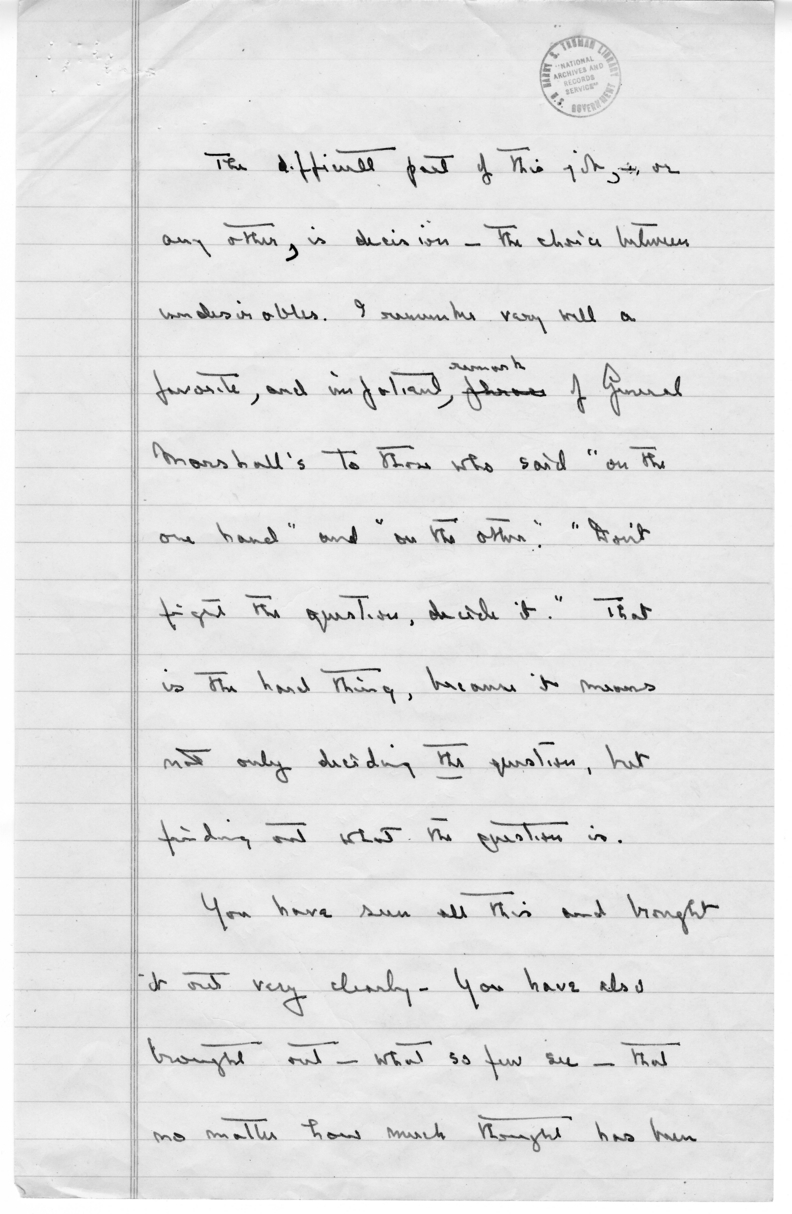 HARRY S. TRUMAN LIBRARY
"NATIONAL
ARCHIVES AND
RECORDS
SERVICE"
U.S. GOVERNMENT
The difficult part of this job, is, or
any other, is decision – the choice between
undesirables. I remember very well a
remark
favorite, and impatient, phrase of General
Marshall's to those who said "on the
one hand" and "on the other". "Don't
fight the question, decide it." That
is the hard thing, because it means
not only deciding the question, but
finding out what the question is.
You have seen all this and brought
it out very clearly – You have also
brought out – what so few see – that
no matter how much thought has been